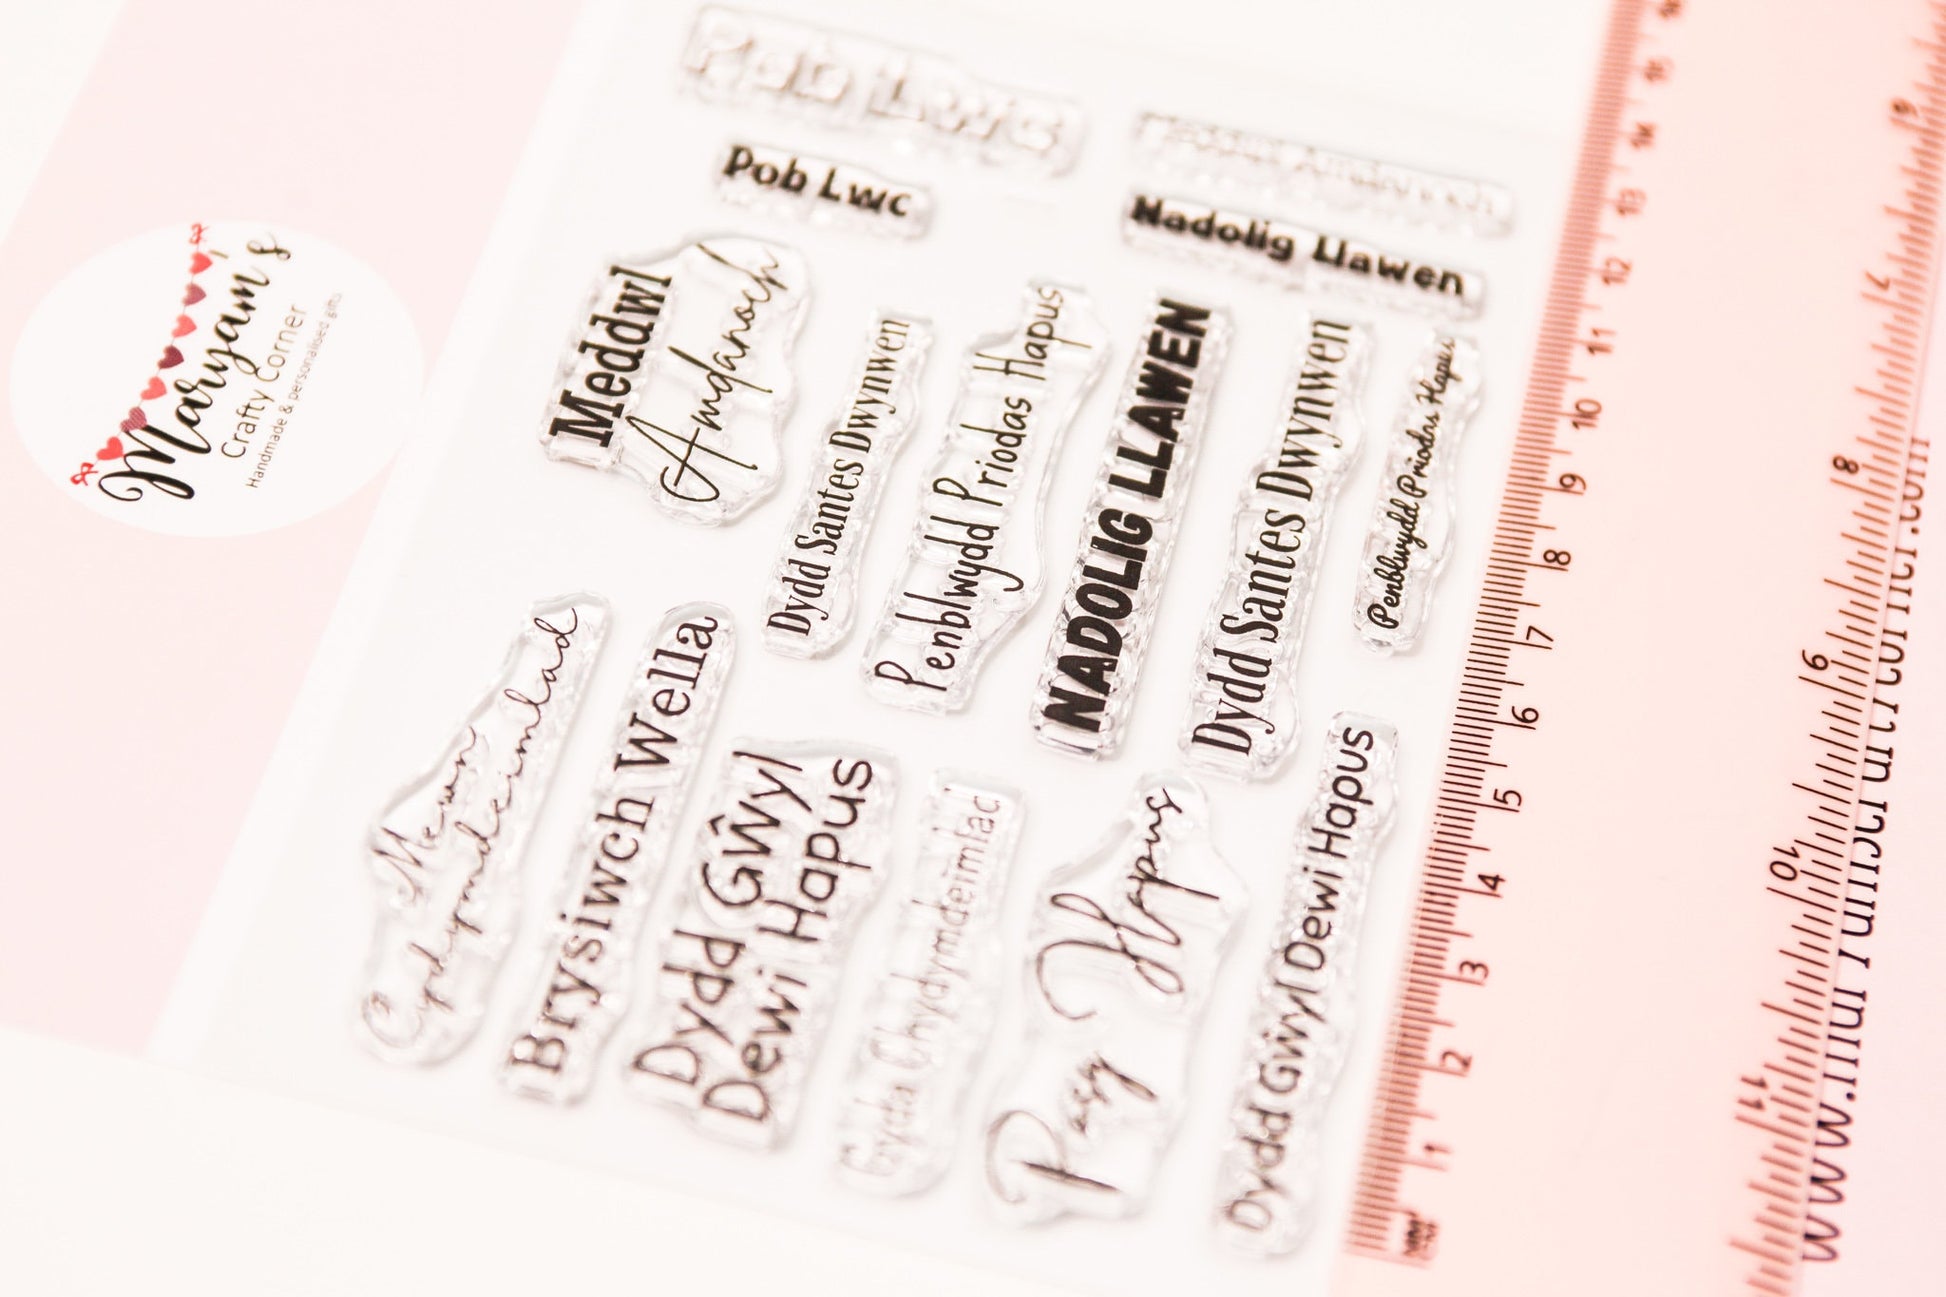 Maryam's
Crafty Corner
Handmade & personalised gifts
Pob Lwc
Pob Lwc
Nadolig Llawen
Meddwl
Amdanoch
Dydd Santes Dwynwen
Penblwydd Priodas Hapus
NADOLIG LLAWEN
Dydd Santes Dwynwen
Penblwydd Priodas Hapus
Mewn
Cydymdeimlad
Brysiwch Wella
Dydd Gŵyl
Dewi Hapus
Gyda Chydymdeimlad
Pasg Hapus
Dydd Gŵyl Dewi Hapus
16
15
14
13
12
11
10
9
8
7
6
5
4
3
2
1
6
7
8
9
10
11